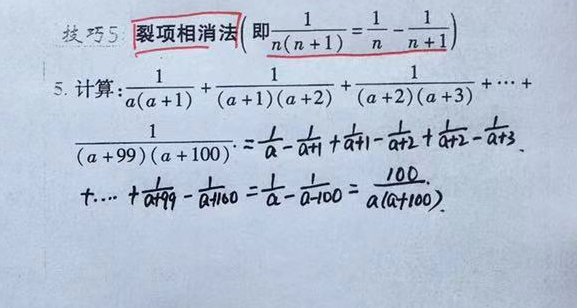 技巧5: 裂项相消法(即1/n(n+1)=1/n-1/n+1)
5. 计算:1/a(a+1)+1/(a+1)(a+2)+1/(a+2)(a+3)+…+
1/(a+99)(a+100).=1/a-1/a+1+1/a+1-1/a+2+1/a+2-1/a+3
+….+1/a+99-1/a+100=1/a-1/a+100=100/a(a+100).